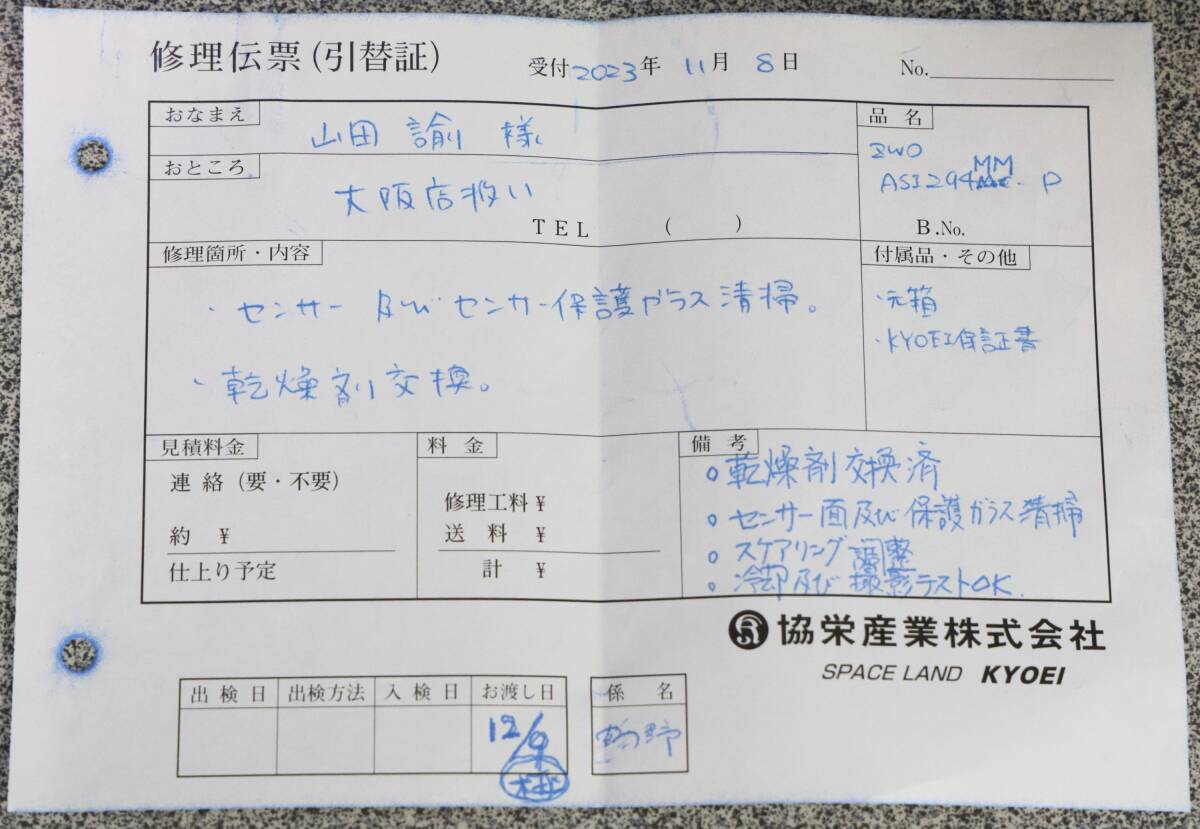 修理伝票(引替証)
受付2023年 11月 8日
No.
おなまえ
山田 諭 様
おところ
大阪店扱い
TEL ( )
品名
ZWO
ASI294MM-P
B.No.
修理箇所・内容
・センサー 及び センサー保護ガラス清掃。
・乾燥剤交換。
付属品・その他
・元箱
・KYOEI保証書
見積料金
連絡(要・不要)
約 ¥
仕上り予定
料金
修理工料¥
送料 ¥
計 ¥
備考
○乾燥剤交換済
○センサー面及び保護ガラス清掃
○スケアリング調整
○冷却及び撮影テストOK.
協栄産業株式会社
SPACE LAND KYOEI
出検日 出検方法 入検日 お渡し日
12/9
係名